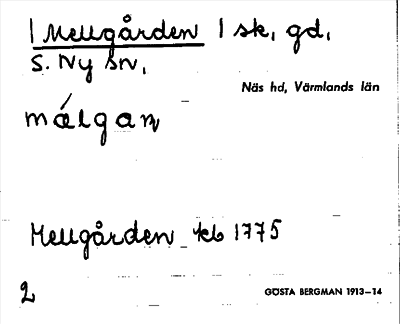 | Mellgården | sk, gd,
S. Ny sn,
Näs hd, Värmlands län
málgaɳ
Mellgården kb 1775
2
GÖSTA BERGMAN 1913–14